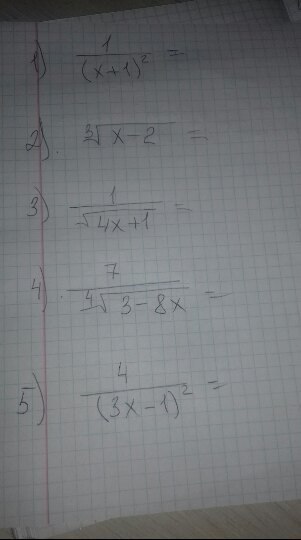 1) 1/(x+1)² =
2). ∛(x-2) =
3) 1/√(4x+1) =
4). 7/∜(3-8x) =
5) 4/(3x-1)² =